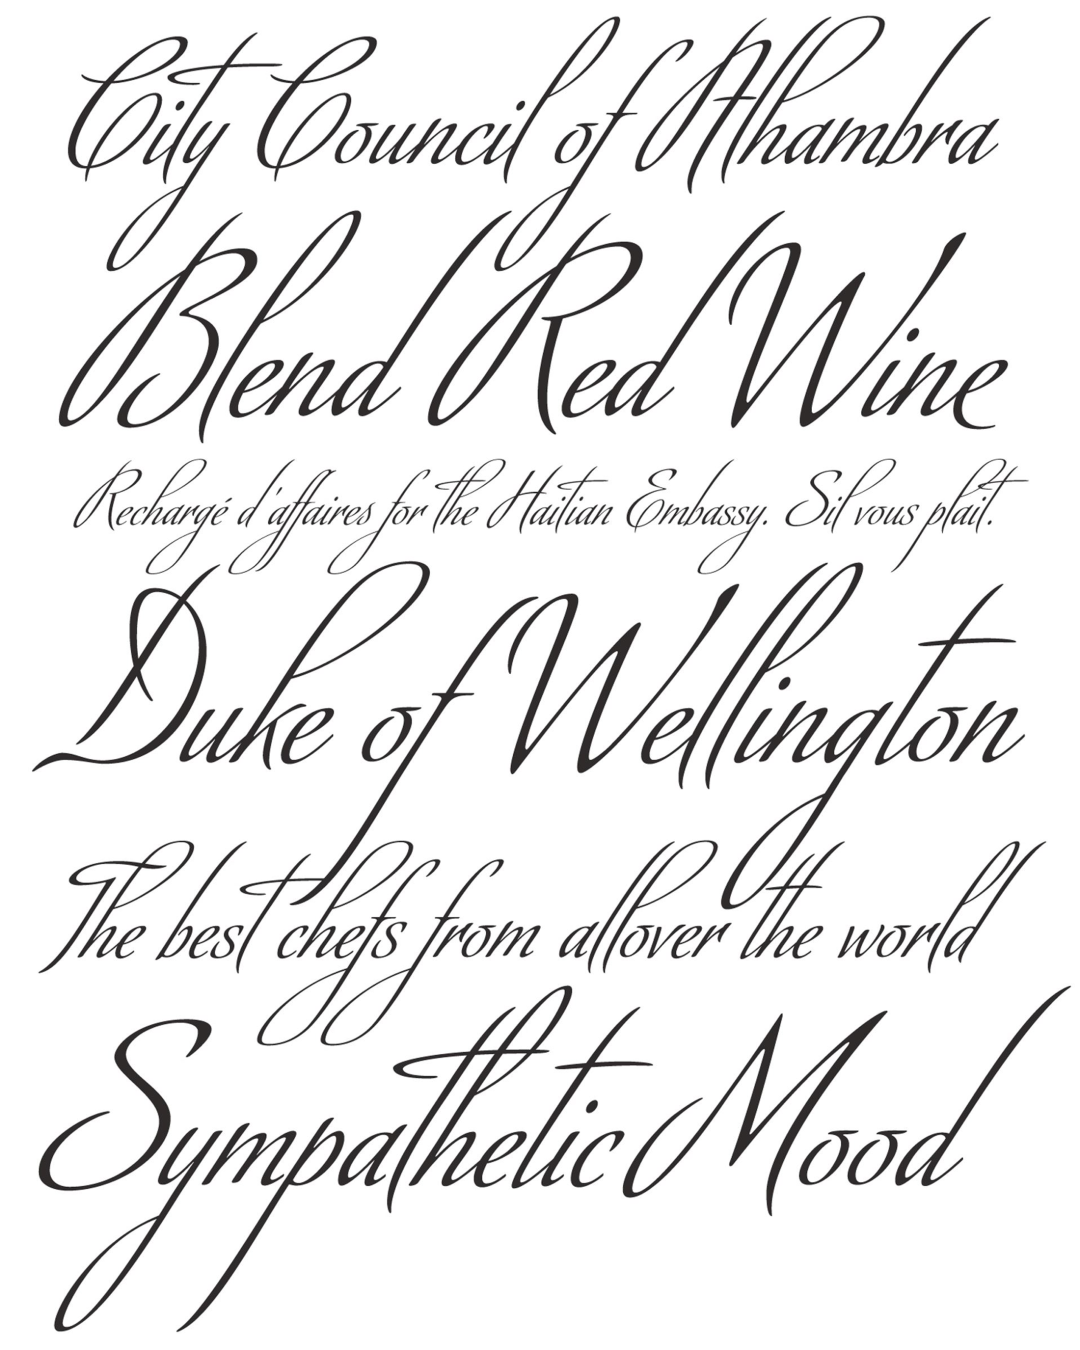 City Council of Alhambra
Blend Red Wine
Rechargé d'affaires for the Haitian Embassy. Sil vous plait.
Duke of Wellington
The best chefs from allover the world
Sympathetic Mood